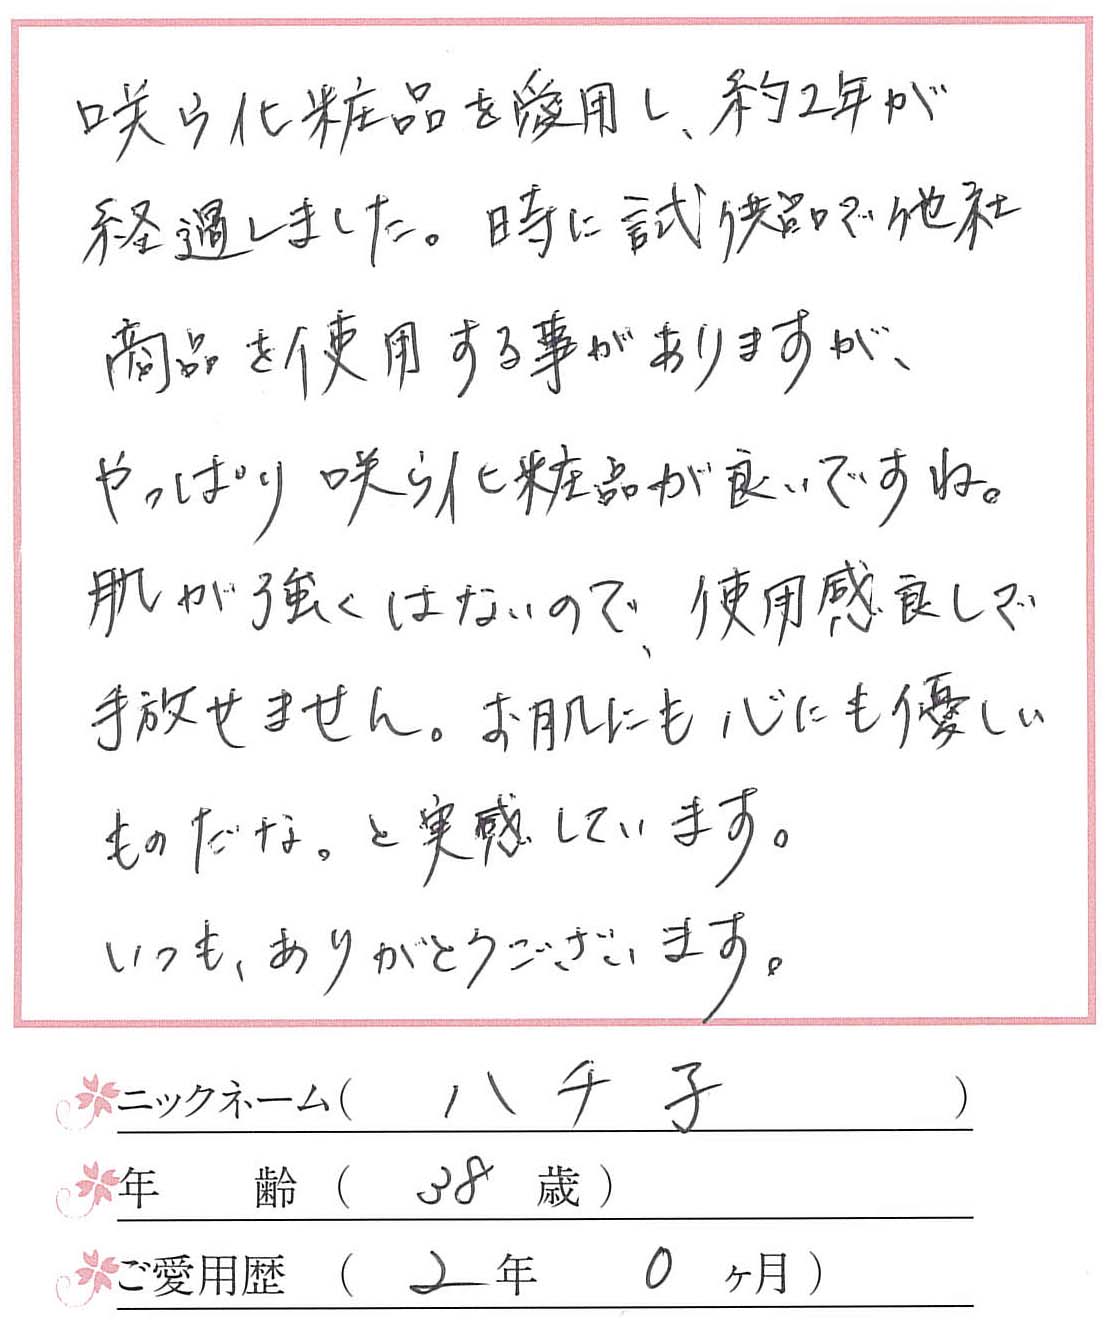 咲ら化粧品を愛用し、約2年が
経過しました。時に試供品で他社
商品を使用する事がありますが、
やっぱり咲ら化粧品が良いですね。
肌が強くはないので、使用感良しで
手放せません。お肌にも心にも優しい
ものだな。と実感しています。
いつも、ありがとうございます。
ニックネーム(ハチ子)
年齢(38歳)
ご愛用歴(2年0ヶ月)